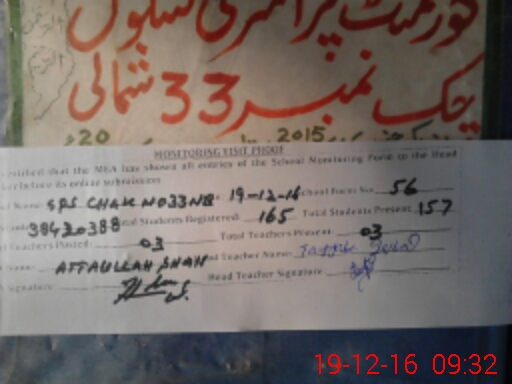 گورنمنٹ پرائمری سکول
چک نمبر 33 شمالی
2015 20
MONITORING VISIT PROOF
certified that the MEA has shown all entries of the School Monitoring Form to the Head
before its online submission
Name: GPS CHAK NO 33 NB. 19-12-16 School Form No. 56
38420388 Students Registered: 165 Total Students Present: 157
Teachers Posted: 03 Total Teachers Present: 03
Name: ATTAULLAH SHAH Teacher Name:
Signature: Head Teacher Signature
19-12-16 09:32